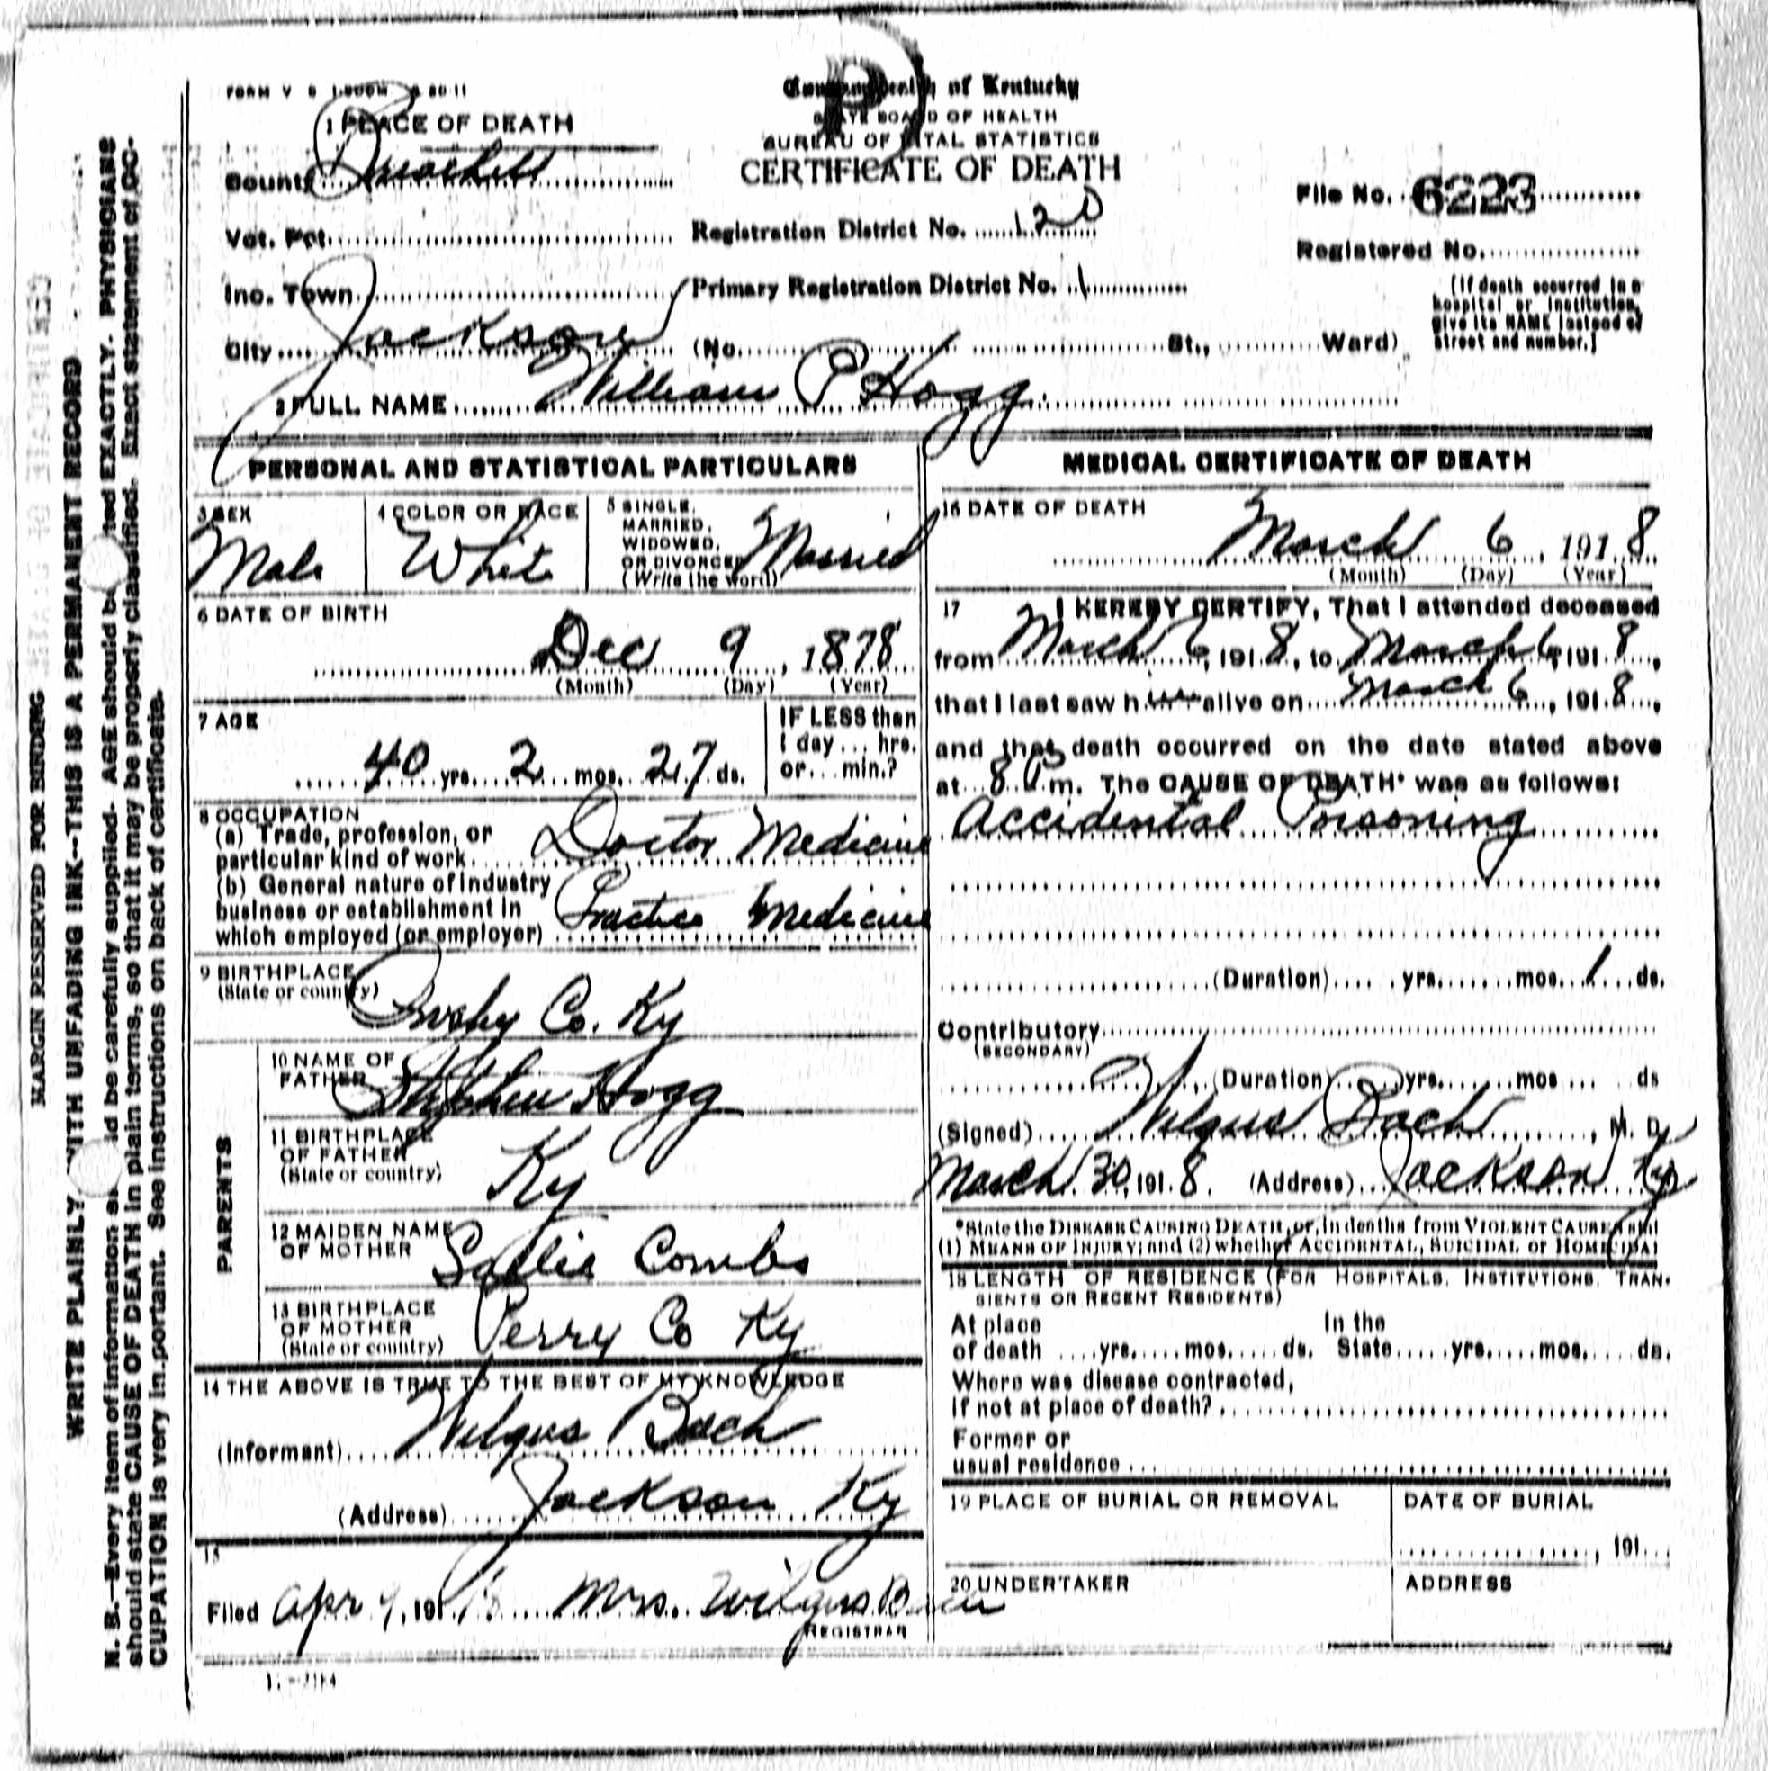 FORM V S
Commonwealth of Kentucky
STATE BOARD OF HEALTH
BUREAU OF VITAL STATISTICS
CERTIFICATE OF DEATH
1 PLACE OF DEATH
County Breathitt
Vot. Pct.
Registration District No. 120
File No. 6223
Registered No.
Inc. Town
Primary Registration District No. 1
(If death occurred in a hospital or institution, give its NAME instead of street and number.)
City Jackson (No. St., Ward)
2 FULL NAME William P Hogg.
PERSONAL AND STATISTICAL PARTICULARS
3 SEX
Male
4 COLOR OR RACE
White
5 SINGLE,
MARRIED,
WIDOWED,
OR DIVORCED
(Write the word)
Married
6 DATE OF BIRTH
Dec 9, 1878
(Month) (Day) (Year)
7 AGE
40 yrs. 2 mos. 27 ds.
IF LESS than
1 day ... hrs.
or ... min.?
8 OCCUPATION
(a) Trade, profession, or
particular kind of work Doctor Medicine
(b) General nature of industry
business or establishment in
which employed (or employer) Practice Medicine
9 BIRTHPLACE
(State or country)
Owsley Co. Ky
PARENTS
10 NAME OF
FATHER
Stephen Hogg
11 BIRTHPLACE
OF FATHER
(State or country)
Ky
12 MAIDEN NAME
OF MOTHER
Sallie Combs
13 BIRTHPLACE
OF MOTHER
(State or country)
Perry Co Ky
14 THE ABOVE IS TRUE TO THE BEST OF MY KNOWLEDGE
(Informant) Wilgus Bach
(Address) Jackson Ky
15
Filed Apr 9, 1918 Mrs. Wilgus Bach
REGISTRAR
MEDICAL CERTIFICATE OF DEATH
16 DATE OF DEATH
March 6, 1918
(Month) (Day) (Year)
17 I HEREBY CERTIFY, That I attended deceased
from March 6, 1918, to March 6, 1918,
that I last saw him alive on March 6, 1918,
and that death occurred on the date stated above
at 8 m. The CAUSE OF DEATH* was as follows:
Accidental Poisoning
(Duration) yrs. mos. 1 ds.
Contributory
(SECONDARY)
(Duration) yrs. mos ds
(Signed) Wilgus Bach, M. D.
March 30, 1918. (Address) Jackson Ky
*State the DISEASE CAUSING DEATH, or, in deaths from VIOLENT CAUSES state
(1) MEANS OF INJURY; and (2) whether ACCIDENTAL, SUICIDAL or HOMICIDAL
18 LENGTH OF RESIDENCE (FOR HOSPITALS, INSTITUTIONS, TRAN-
SIENTS OR RECENT RESIDENTS)
At place In the
of death yrs. mos. ds. State yrs. mos. ds.
Where was disease contracted,
if not at place of death?
Former or
usual residence
19 PLACE OF BURIAL OR REMOVAL
DATE OF BURIAL
, 191
20 UNDERTAKER
ADDRESS
MARGIN RESERVED FOR BINDING
WRITE PLAINLY WITH UNFADING INK--THIS IS A PERMANENT RECORD
N. B.--Every item of information should be carefully supplied. AGE should be stated EXACTLY. PHYSICIANS
should state CAUSE OF DEATH in plain terms, so that it may be properly classified. Exact statement of OC-
CUPATION is very important. See instructions on back of certificate.